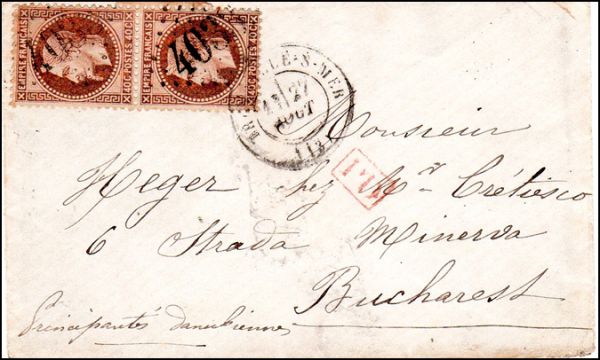 EMPIRE FRANÇAIS
40C·POSTES·40C
EMPIRE FRANÇAIS
40C·POSTES·40C
403
403
LLE-S-MER
27
AOUT
(13)
P.D
Monsieur
Heger chez Mr Crétiesco
6 Strada Minerva
Bucharest
Principautés danubiennes